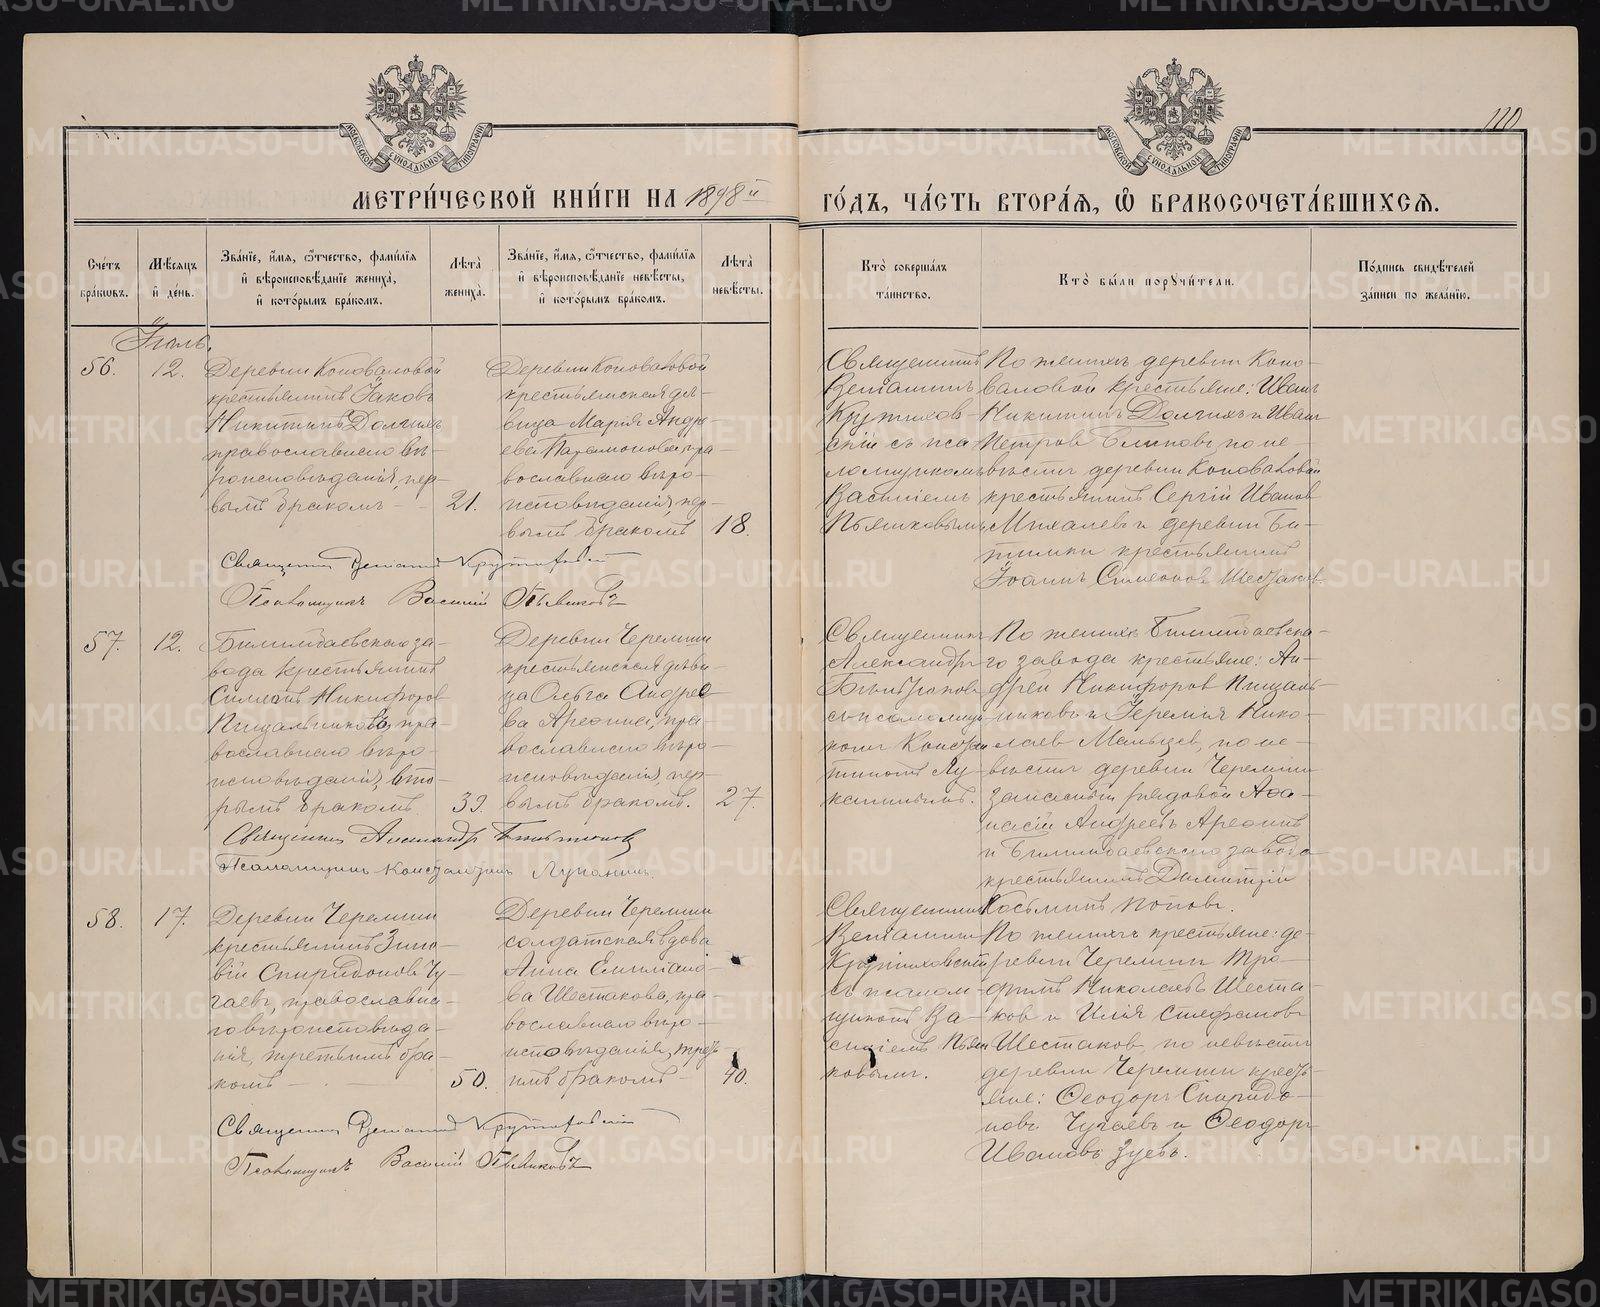 110
МОСКОВСКОЙ СѴНОДАЛЬНОЙ ТИПОГРАФІИ
МОСКОВСКОЙ СѴНОДАЛЬНОЙ ТИПОГРАФІИ
МЕТРИ́ЧЕСКОЙ КНИ́ГИ НА 1898й
ГО́ДЪ, ЧА́СТЬ ВТОРА́Я, Ѡ҆ БРАКОСОЧЕТА́ВШИХСЯ.
Сче́тъ бра́кѡвъ.
Мѣ́сяцъ и҆ де́нь.
Зва́нїе, и҆́мя, ѻ҆́тчество, фами́лїя и҆ вѣроисповѣ́данїе жениха̀, и҆ кото́рымъ бра́комъ.
Лѣта̀ жениха̀.
Зва́нїе, и҆́мя, ѻ҆́тчество, фами́лїя и҆ вѣроисповѣ́данїе невѣ́сты, и҆ кото́рымъ бра́комъ.
Лѣта̀ невѣ́сты.
Кто̀ соверша́лъ та́инство.
Кто̀ бы́ли порꙋчи́тели.
По́дпись свидѣ́телей за́писи по жела́нїю.
Іюль.
56.
12.
Деревни Коноваловой
крестьянинъ Іаковъ
Никитинъ Долгихъ
православнаго вѣ-
роисповѣданія, пер-
вымъ бракомъ
21.
Деревни Коноваловой
крестьянская дѣ-
вица Марія Андре-
ева Парамонова, пра-
вославнаго вѣро-
исповѣданія, пер-
вымъ бракомъ
18.
Священникъ
Веніаминъ
Крутихов-
скій съ пса-
ломщикомъ
Василіемъ
Пьянковымъ
По женихѣ деревни Коно-
валовой крестьяне: Иванъ
Никитинъ Долгихъ и Иванъ
Петровъ Блиновъ, по не-
вѣстѣ деревни Коноваловой
крестьянинъ Сергій Ивановъ
Михалевъ и деревни Би-
тимки крестьянинъ
Іоаннъ Симеоновъ Шестаковъ
Священникъ Веніаминъ Крутиховскій
Псаломщикъ Василій Пьянковъ
57.
12.
Билимбаевскаго за-
вода крестьянинъ
Симеонъ Никифоровъ
Пищальниковъ, пра-
вославнаго вѣро-
исповѣданія, вто-
рымъ бракомъ
39.
Деревни Черемши
крестьянская дѣви-
ца Ольга Андрее-
ва, пра-
вославнаго вѣро-
исповѣданія, пер-
вымъ бракомъ.
27.
Священникъ
Александръ
съ псаломщи-
комъ Констан-
тиномъ Лу-
канинымъ.
По женихѣ Билимбаевска-
го завода крестьяне: Ан-
дрей Никифоровъ Пищаль-
никовъ и Іеремія Нико-
лаевъ Мальцевъ, по не-
вѣстѣ деревни Черемши
запасный рядовой Аѳа-
насій Андреевъ
и Билимбаевскаго завода
крестьянинъ Димитрій
Косьминъ Поповъ.
Священникъ Александръ
Псаломщикъ Константинъ Луканинъ
58.
17.
Деревни Черемши
крестьянинъ Зино-
вій Спиридоновъ Чу-
гаевъ, православна-
го вѣроисповѣда-
нія, третьимъ бра-
комъ
50.
Деревни Черемши
солдатская вдова
Анна Емиліано-
ва Шестакова, пра-
вославнаго вѣро-
исповѣданія, треть-
имъ бракомъ
40.
Священникъ
Веніаминъ
Крутиховскій
съ псалом-
щикомъ Ва-
силіемъ Пьян-
ковымъ.
По женихѣ крестьяне: де-
ревни Черемши Тро-
фимъ Николаевъ Шеста-
ковъ и Илія Стефановъ
Шестаковъ, по невѣстѣ
деревни Черемши кресть-
яне: Ѳеодоръ Спиридо-
новъ Чугаевъ и Ѳеодоръ
Ивановъ Зуевъ.
Священникъ Веніаминъ Крутиховскій
Псаломщикъ Василій Пьянковъ
METRIKI.GASO-URAL.RU